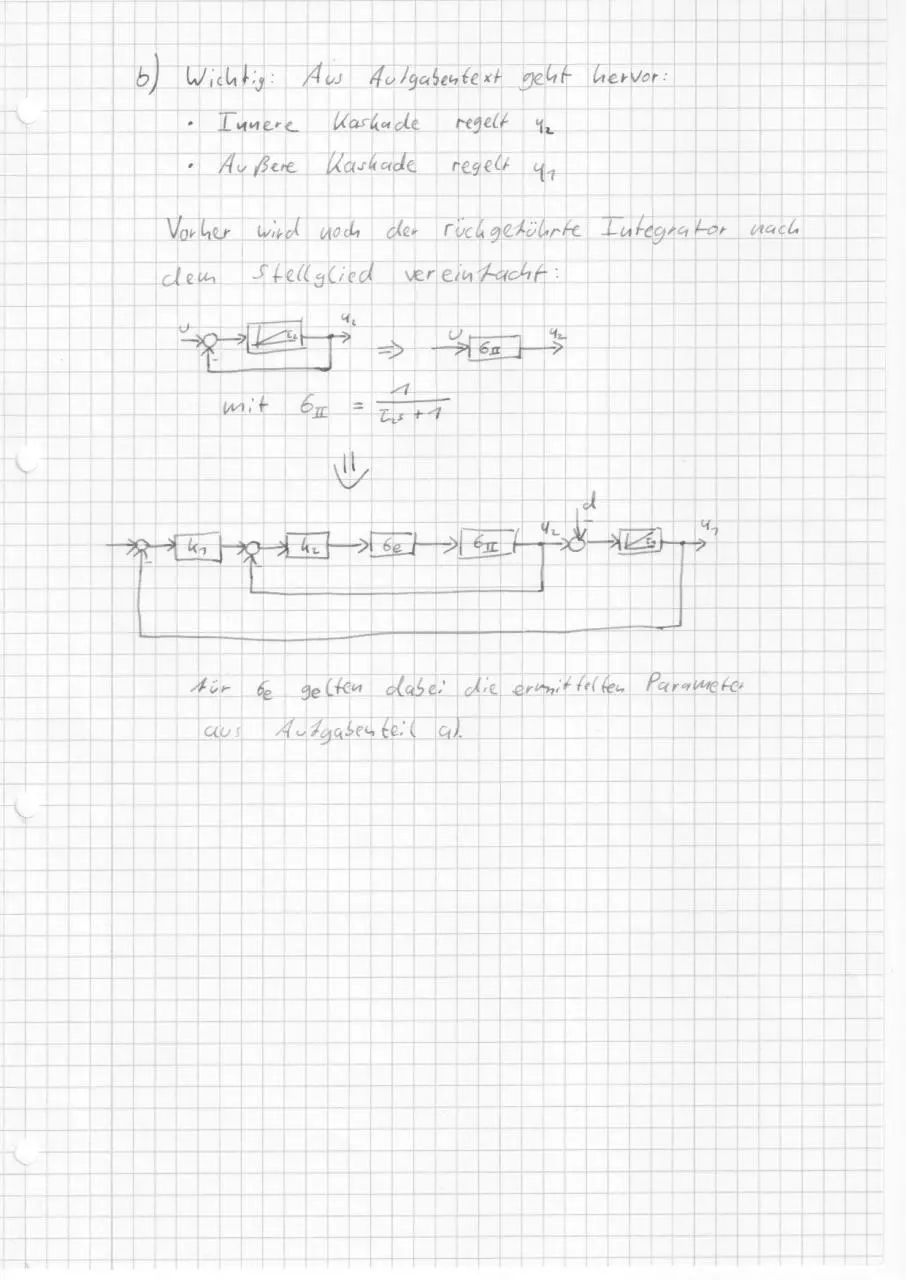 b) Wichtig: Aus Aufgabentext geht hervor:
• Innere Kaskade regelt y₂
• Äußere Kaskade regelt y₁
Vorher wird noch der rückgeführte Integrator nach
dem Stellglied vereinfacht:
U τ₂ y₂ ⇒ U G_II y₂
-
mit G_II = 1 / (τ₂s + 1)
⇓
d
k₁ k₂ Ge G_II y₂ - y₁
- -
für Ge gelten dabei die ermittelten Parameter
aus Aufgabenteil a).